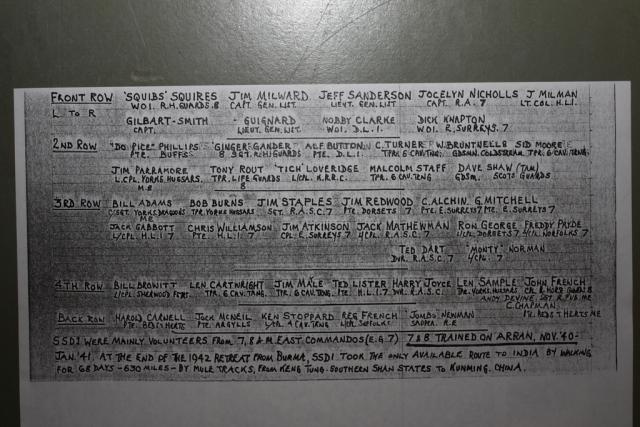 FRONT ROW 'SQUIBS' SQUIRES JIM MILWARD JEFF SANDERSON JOCELYN NICHOLLS J MILMAN
L TO R WO1. R.H. GUARDS. 8 CAPT. GEN. LIST. LIEUT. GEN. LIST. CAPT. R.A. 7 LT. COL. H.L.I.
GILBART-SMITH GUIGNARD NOBBY CLARKE DICK KNAPTON
CAPT. LIEUT. GEN. LIST. WO1. D.L.I. WO1. E. SURREYS. 7
2ND ROW "DO PICE" PHILLIPS 'GINGER' GANDER ALF BUTTON C. TURNER W. BRUNTWELLS SID MOORE
PTE. BUFFS 8 SGT. R.H. GUARDS PTE. D.L.I. TPR. 6 CAV. TRNG. GDSMN. COLDSTREAM. TPR. 6 CAV. TRNG.
JIM PARRAMORE TONY ROUT 'TICH' LOVERIDGE MALCOLM STAFF DAVE SHAW (TAM)
L. CPL. YORKS HUSSARS. TPR. LIFE GUARDS L/CPL. K.R.R.C. TPR. 6 CAV. TRNG GDSM. SCOTS GUARDS
M.E 8
3RD ROW BILL ADAMS BOB BURNS JIM STAPLES JIM REDWOOD C. ALCHIN. G. MITCHELL
C/SGT. YORKS DRAGOONS TPR. YORKS HUSSARS SGT. R.A.S.C. 7 PTE. DORSETS 7 PTE. E. SURREYS 7 PTE. E. SURREYS 7
ME
JACK GABBOTT CHRIS WILLIAMSON JIM ATKINSON JACK MATHEWMAN RON GEORGE FREDDY PAYDE
L/CPL. H.L.I. 7 PTE. H.L.I. 7 CPL. E. SURREYS 7 L/CPL. R.A.S.C. 7 L/CPL. DORSETS 7 L/CPL. NORFOLKS 7
TED DART "MONTY" NORMAN
DVR. R.A.S.C. 7 L/CPL. 7
4TH ROW BILL BROWITT LEN CARTWRIGHT JIM MALE TED LISTER HARRY JOYCE LEN SAMPLE JOHN FRENCH
L/CPL SHERWOOD TPR. 6 CAV. TNG. TPR. 6 CAV. TNG. PTE. H.L.I. 7 DVR. R.A.S.C. TPR. YORKS HUSSARS CPL R. HORSE GUARDS 8
ANDY DEVINE, SGT. ME
C. CHAPMAN.
BACK ROW HAROLD CARNELL JOCK McNEIL KEN STOPPARD REG FRENCH JUMBO NEWMAN PTE. BEDS & HERTS ME
PTE. BEDS & HERTS PTE. ARGYLLS CAV. TRNG SUFFOLKS SAPPER. R.E
SSD1 WERE MAINLY VOLUNTEERS FROM 7, 8 & M. EAST COMMANDOS (E.G. 7) 7 & 8 TRAINED ON ARRAN, NOV. '40-
JAN. '41. AT THE END OF THE 1942 RETREAT FROM BURMA, SSD1 TOOK THE ONLY AVAILABLE ROUTE TO INDIA BY WALKING
FOR 68 DAYS - 630 MILES - BY MULE TRACKS, FROM KENG TUNG SOUTHERN SHAN STATES TO KUNMING. CHINA.